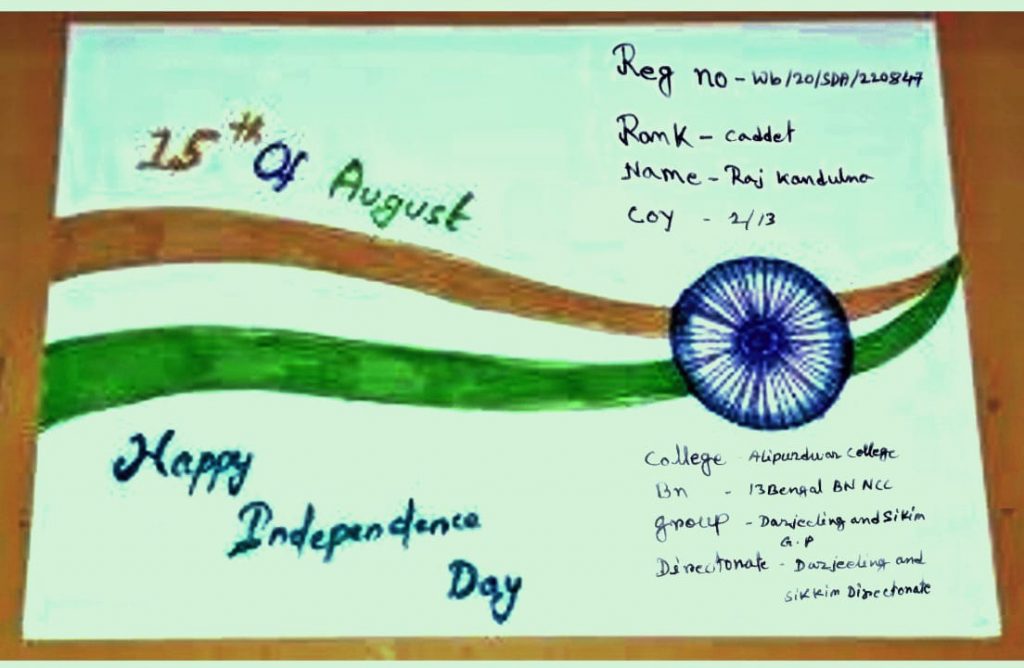 Reg no - Wb/20/SDA/220847
Rank - Caddet
Name - Raj Kandulna
Coy - 2/13
15th Of August
Happy
Independence
Day
College - Alipurduar College
Bn - 13 Bengal BN NCC
group - Darjeeling and Sikim
G.P
Directorate - Darjeeling and
Sikkim Directorate